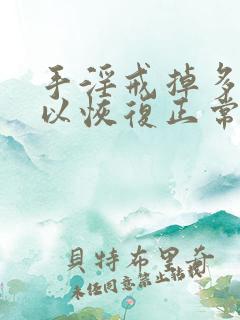 手淫戒掉多
以恢復正常
貝特布里奇
未经同意禁止转载